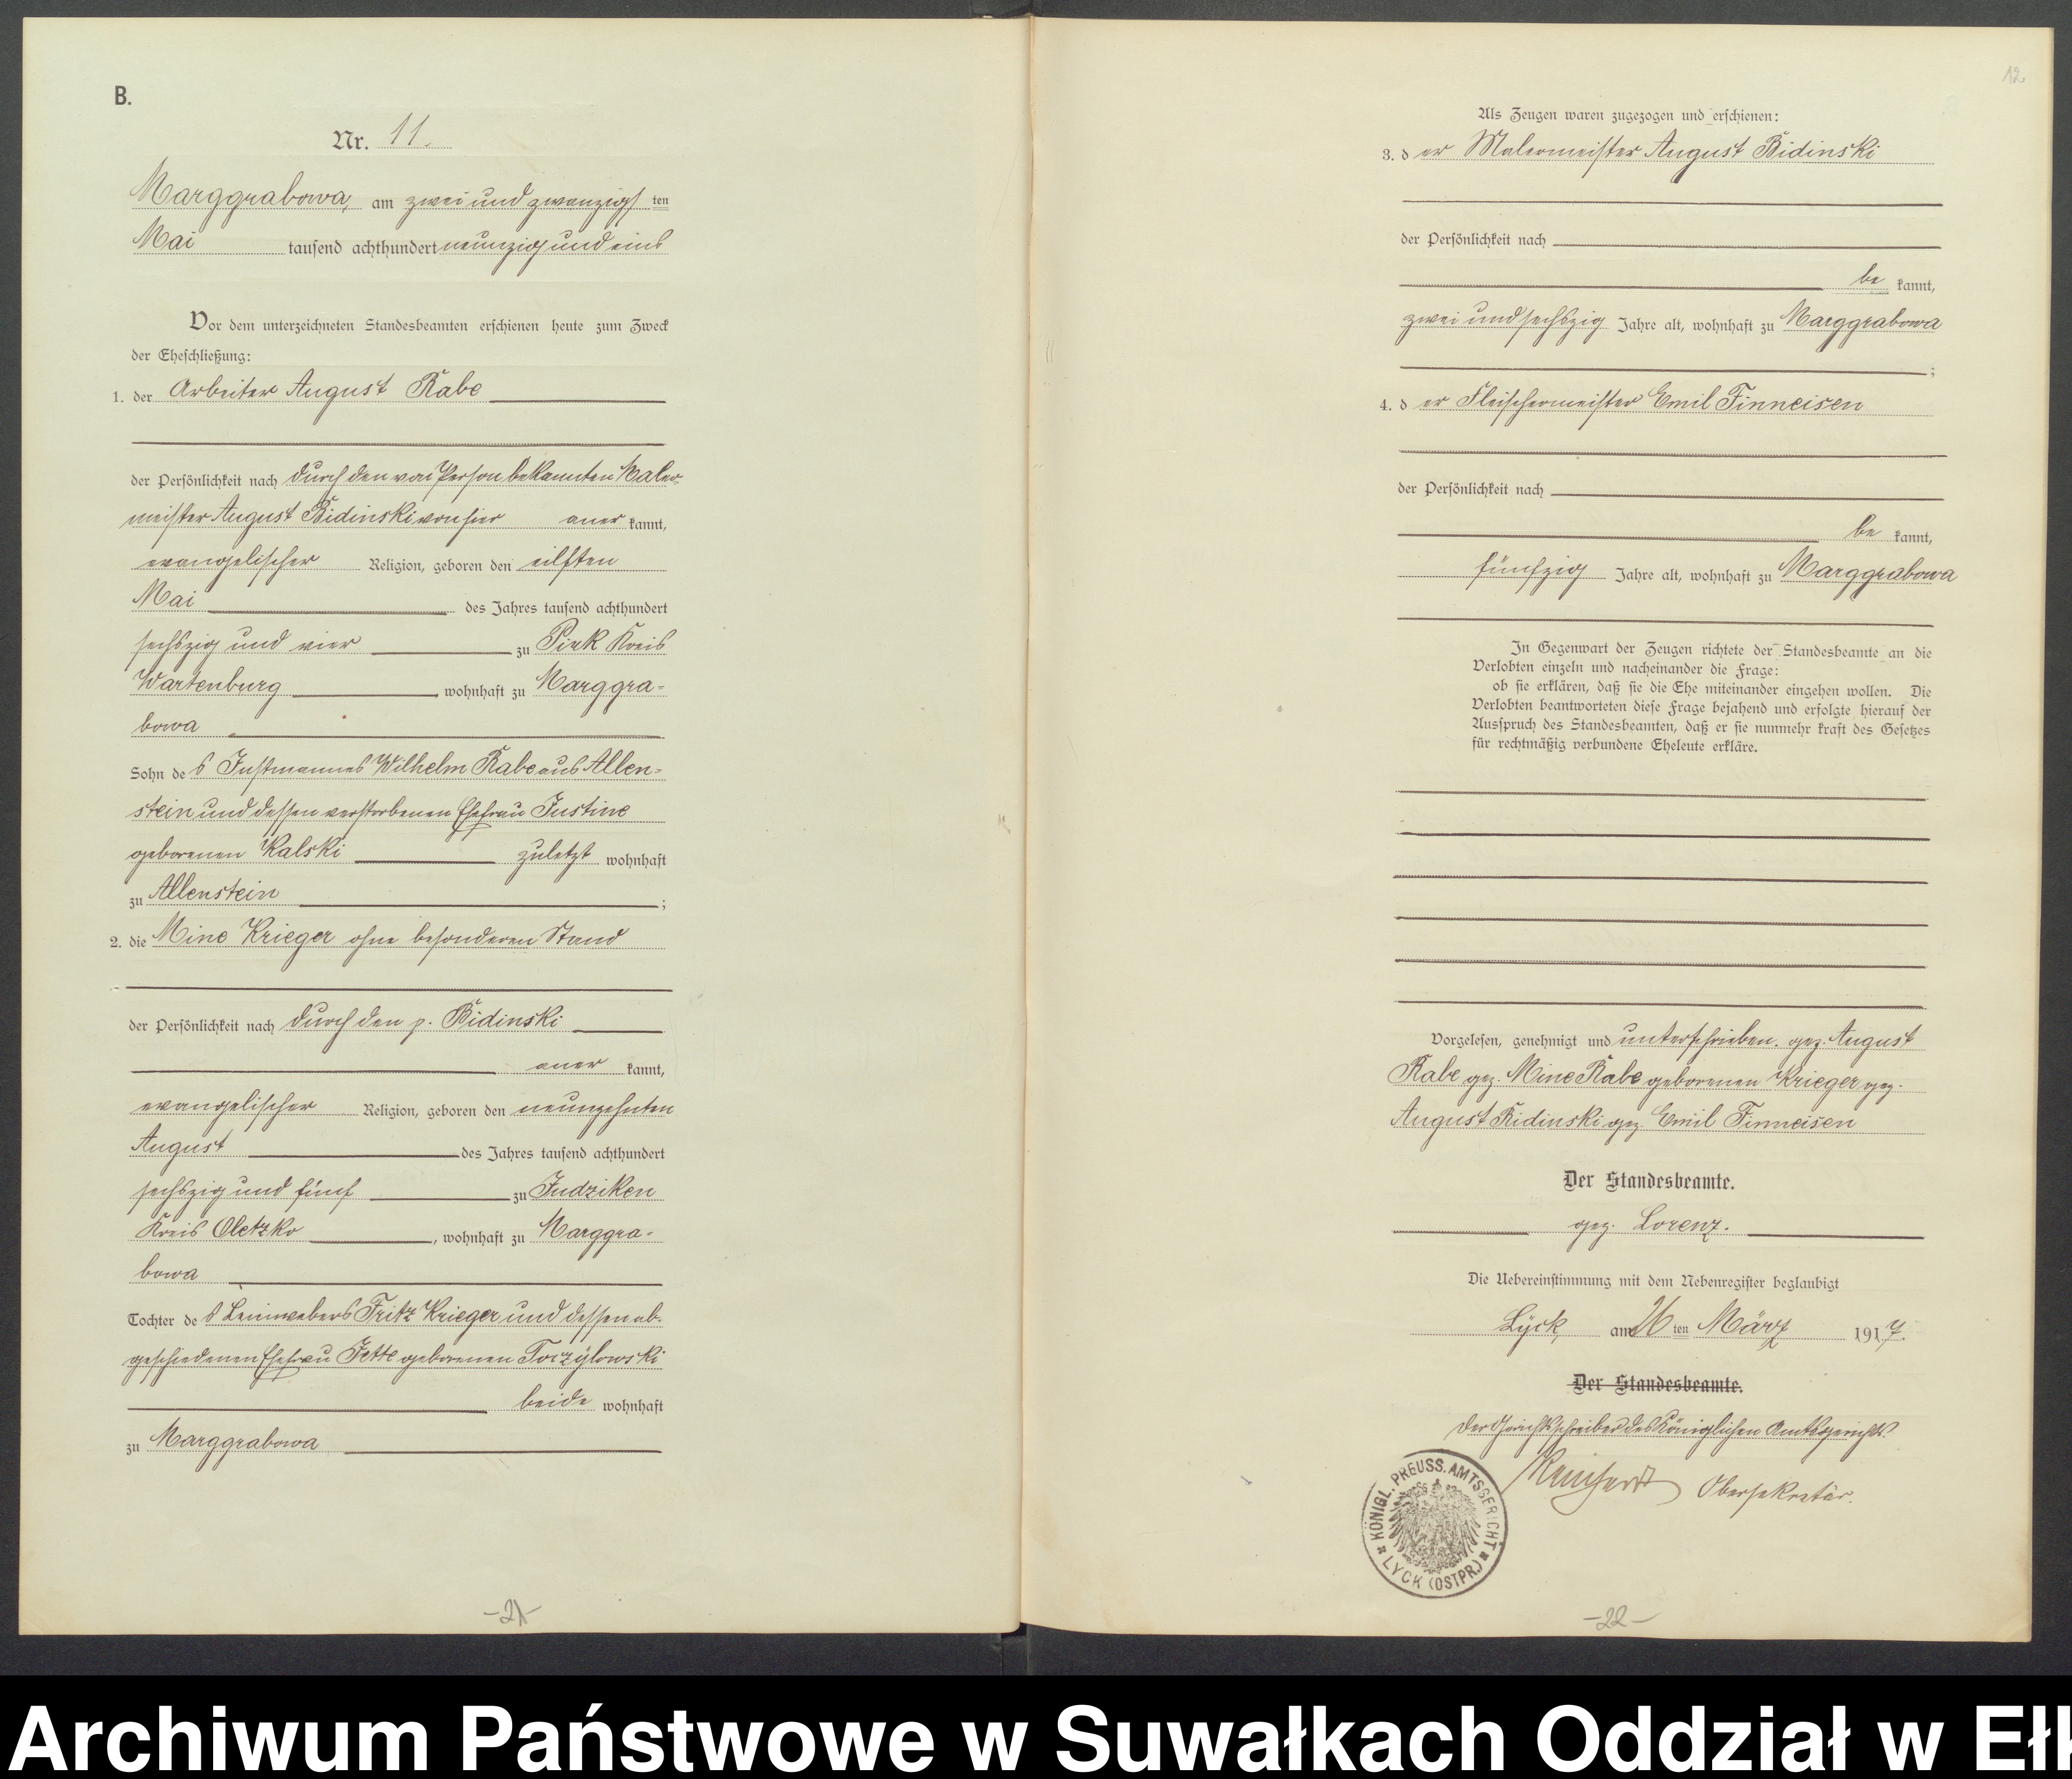 B.
Nr. 11.
Marggrabowa, am zwei und zwanzigs ten
Mai tausend achthundert neunzig und eins
Vor dem unterzeichneten Standesbeamten erschienen heute zum Zweck
der Eheschließung:
1. der Arbeiter August Rabe
der Persönlichkeit nach durch den von Person bekannten Maler-
meister August Bidinski von hier aner kannt,
evangelischer Religion, geboren den eilften
Mai des Jahres tausend achthundert
sechszig und vier zu Pirk Kreis
Wartenburg, wohnhaft zu Marggra-
bowa
Sohn de s Instmannes Wilhelm Rabe aus Allen-
stein und dessen verstorbenen Ehefrau Justine
geborenen Kalski zuletzt wohnhaft
zu Allenstein ;
2. die Mine Krieger ohne besonderen Stand
der Persönlichkeit nach durch den p. Bidinski
aner kannt,
evangelischer Religion, geboren den neunzehnten
August des Jahres tausend achthundert
sechszig und fünf zu Judziken
Kreis Oletzko, wohnhaft zu Marggra-
bowa
Tochter de s Leinwebers Fritz Krieger und dessen ab-
geschiedenen Ehefrau Jette geborenen Torzylowski
beide wohnhaft
zu Marggrabowa
-21-
12
Als Zeugen waren zugezogen und erschienen:
3. d er Malermeister August Bidinski
der Persönlichkeit nach
be kannt,
zwei und sechszig Jahre alt, wohnhaft zu Marggrabowa
;
4. d er Fleischermeister Emil Finneisen
der Persönlichkeit nach
be kannt,
fünfzig Jahre alt, wohnhaft zu Marggrabowa
In Gegenwart der Zeugen richtete der Standesbeamte an die
Verlobten einzeln und nacheinander die Frage:
ob sie erklären, daß sie die Ehe miteinander eingehen wollen. Die
Verlobten beantworteten diese Frage bejahend und erfolgte hierauf der
Ausspruch des Standesbeamten, daß er sie nunmehr kraft des Gesetzes
für rechtmäßig verbundene Eheleute erkläre.
Vorgelesen, genehmigt und unterschrieben. gez. August
Rabe gez. Mine Rabe geborenen Krieger gez.
August Bidinski gez. Emil Finneisen
Der Standesbeamte.
gez. Lorenz.
Die Uebereinstimmung mit dem Nebenregister beglaubigt
Lyck, am 26 ten März 1917.
Der Standesbeamte.
Der Gerichtsschreiber des Königlichen Amtsgerichts.
Obersekretär.
KÖNIGL. PREUSS. AMTSGERICHT
LYCK (OSTPR.)
-22-
Archiwum Państwowe w Suwałkach Oddział w Ełk